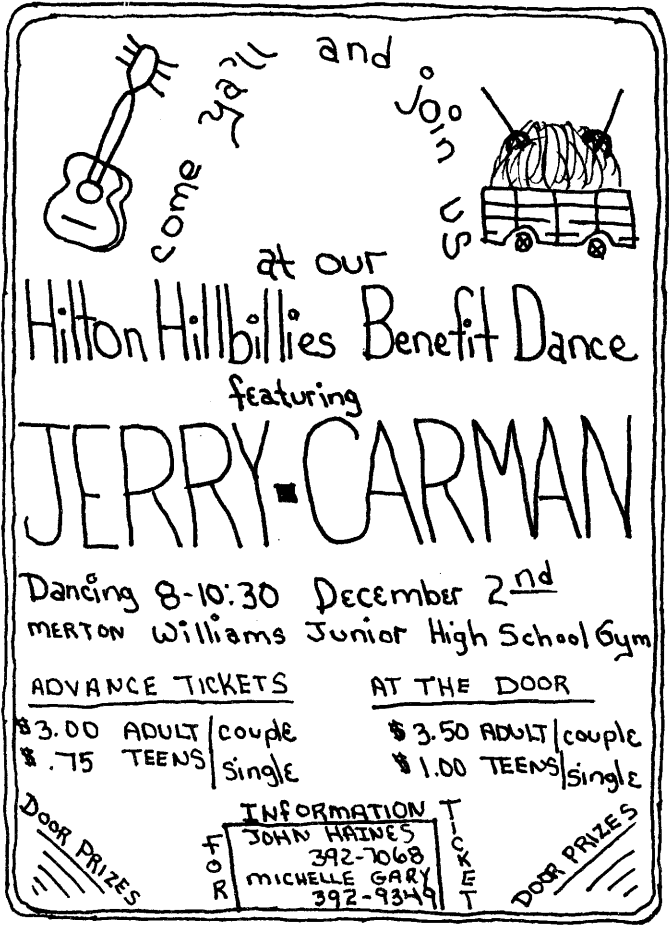 come ya'll and join us
at our
Hilton Hillbillies Benefit Dance
featuring
JERRY-CARMAN
Dancing 8-10:30 December 2nd
MERTON Williams Junior High School Gym
ADVANCE TICKETS
$3.00 ADULT/couple
$.75 TEENS/single
AT THE DOOR
$3.50 ADULT/couple
$1.00 TEENS/single
DOOR PRIZES
FOR
INFORMATION
TICKET
JOHN HAINES
392-7068
MICHELLE GARY
392-9349
DOOR PRIZES